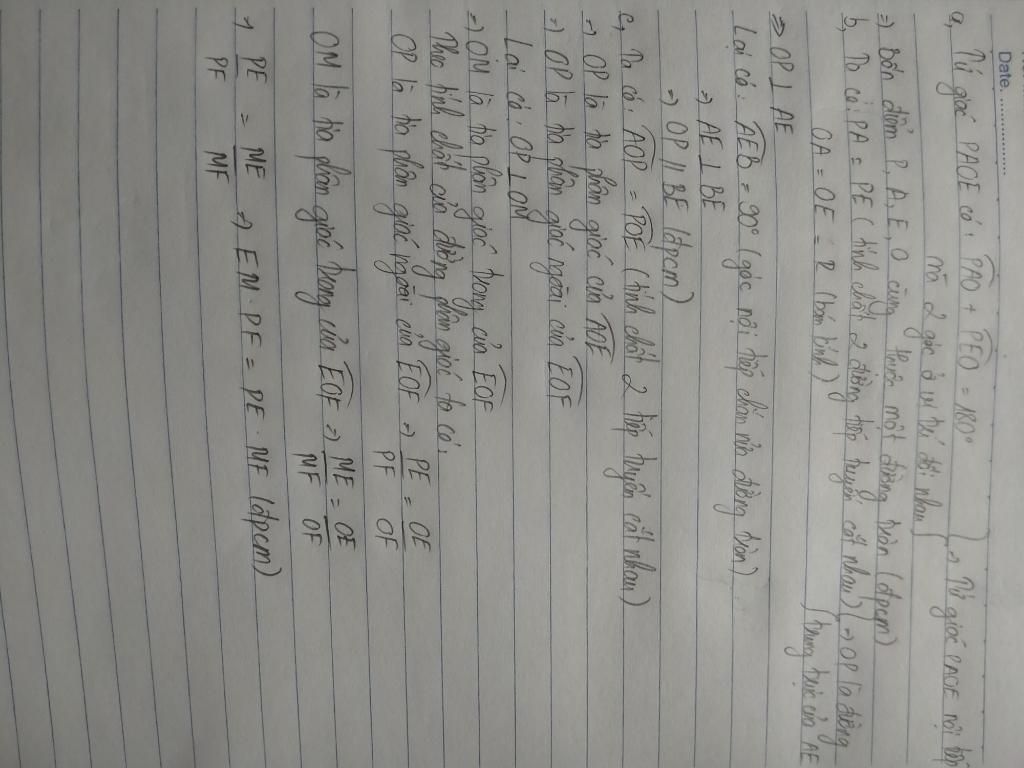 Date. ..................
a, Tứ giác PAOE có: PAO + PEO = 180°
mà 2 góc ở vị trí đối nhau } → Tứ giác PAOE nội tiếp
⇒ Bốn điểm P, A, E, O cùng thuộc một đường tròn (đpcm)
b, Ta có: PA = PE (tính chất 2 đường tiếp tuyến cắt nhau)
OA = OE = R (bán kính) } → OP là đường trung trực của AE
⇒ OP ⊥ AE
Lại có: AEB = 90° (góc nội tiếp chắn nửa đường tròn)
→ AE ⊥ BE
→ OP // BE (đpcm)
c, Ta có: AOP = POE (tính chất 2 tiếp tuyến cắt nhau)
→ OP là tia phân giác của AOE
→ OP là tia phân giác ngoài của EOF
Lại có: OP ⊥ OM
→ OM là tia phân giác trong của EOF
Theo tính chất của đường phân giác ta có:
OP là tia phân giác ngoài của EOF → PE/PF = OE/OF
OM là tia phân giác trong của EOF → ME/MF = OE/OF
→ PE/PF = ME/MF → EM . PF = PE . MF (đpcm)